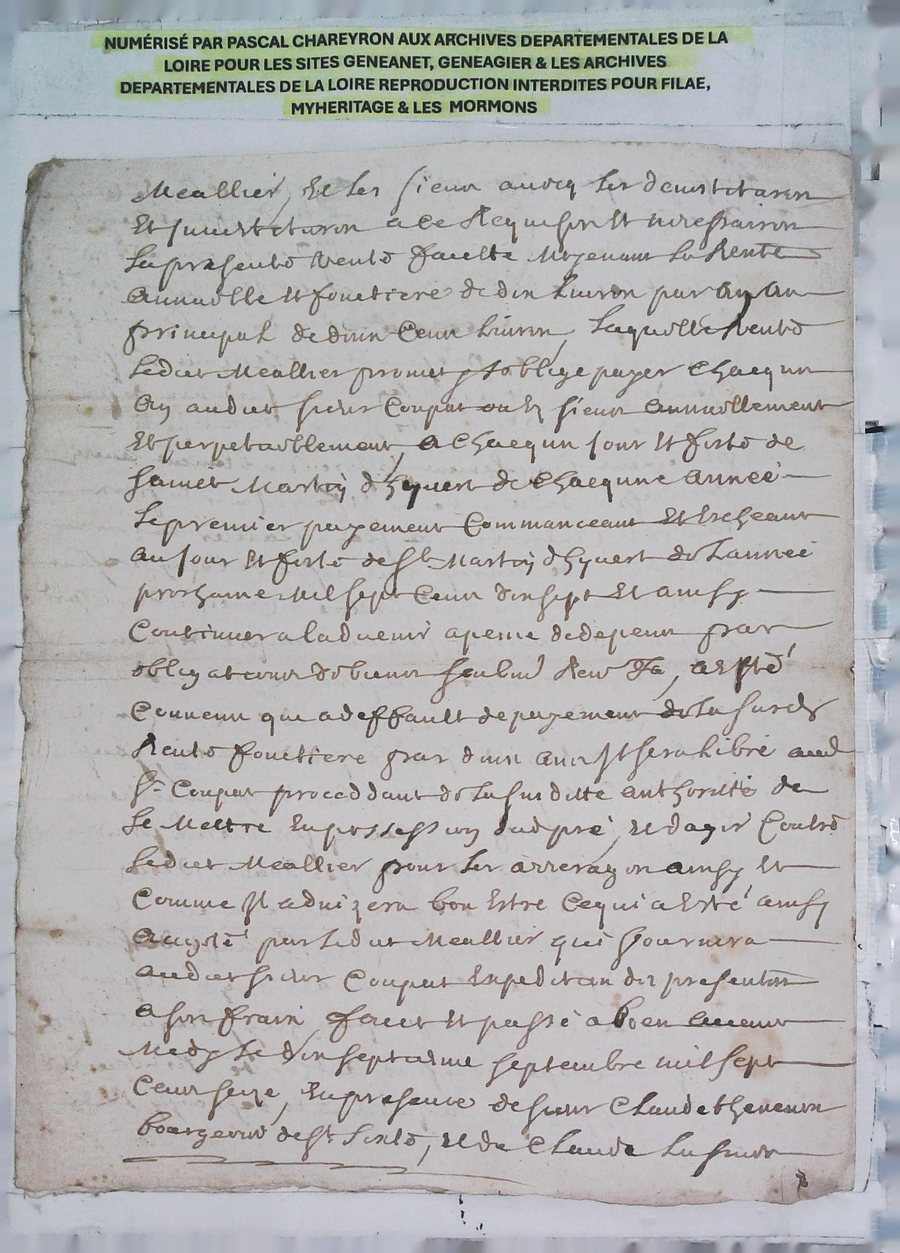 NUMÉRISÉ PAR PASCAL CHAREYRON AUX ARCHIVES DEPARTEMENTALES DE LA
LOIRE POUR LES SITES GENEANET, GENEAGIER & LES ARCHIVES
DEPARTEMENTALES DE LA LOIRE REPRODUCTION INTERDITES POUR FILAE,
MYHERITAGE & LES MORMONS
Meallier, et les sieurs avecq les
et a ce Requises et necessaires
La presente vente faicte Moyenant La Rente
annuelle et fonctiere de dix Livres par an au
principal de deux Cent Livres, Laquelle Rente
Ledict Meallier promet et soblige payer Chacqun
an audict sieur Coupat ou es siens annuellement
Et perpetuellement, a Chacqun jour et feste de
sainct Martin dhyvert de Chacqune année
Le premier payement Commanceant Et Escheant
au jour et feste de St Martin dhyvert de Lannée
prochaine Mil sept Cent dix sept Et ainsy
Continuer a ladvenir a peine de depens par
obligations de biens, a esté
Convenu que a deffault de payement de La susd
Rente fonctiere par deux ans Il sera Libre aud
Sr Coupat proceddant de La susditte authorité de
se Mettre En possession dud pré, Et dagir Contre
Ledict Meallier pour Les arrerages ainsy Et
Comme Il advizera bon Estre Ce qui a Esté ainsy
accepté par Ledict Meallier qui fournira
audict sieur Coupat Expedition des presentes
a ses frais, faict Et passé a Boen avant
Midy Le dix septiesme septembre mil sept
Cent seize, En presence de sieur Claude Thevenon
bourgeois de St Sixte, Et de Claude